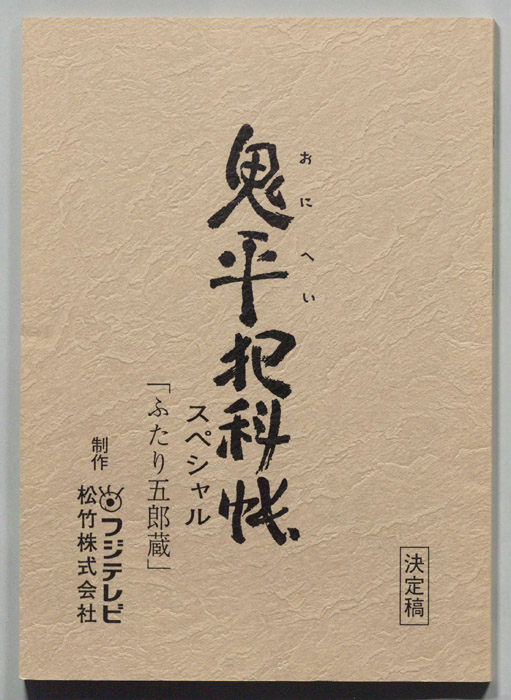 決定稿
おにへい
鬼平犯科帳
スペシャル
「ふたり五郎蔵」
制作
フジテレビ
松竹株式会社